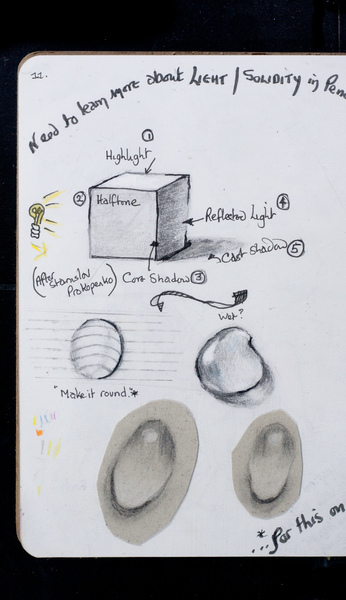 11.
Need to learn more about LIGHT / SOLIDITY in Penc
①
Highlight
②
Halftone
Reflected Light ④
Cast Shadow ⑤
(After Stanislav Prokopenko)
Core Shadow ③
Wot?
"Make it round."*
*
...for this on